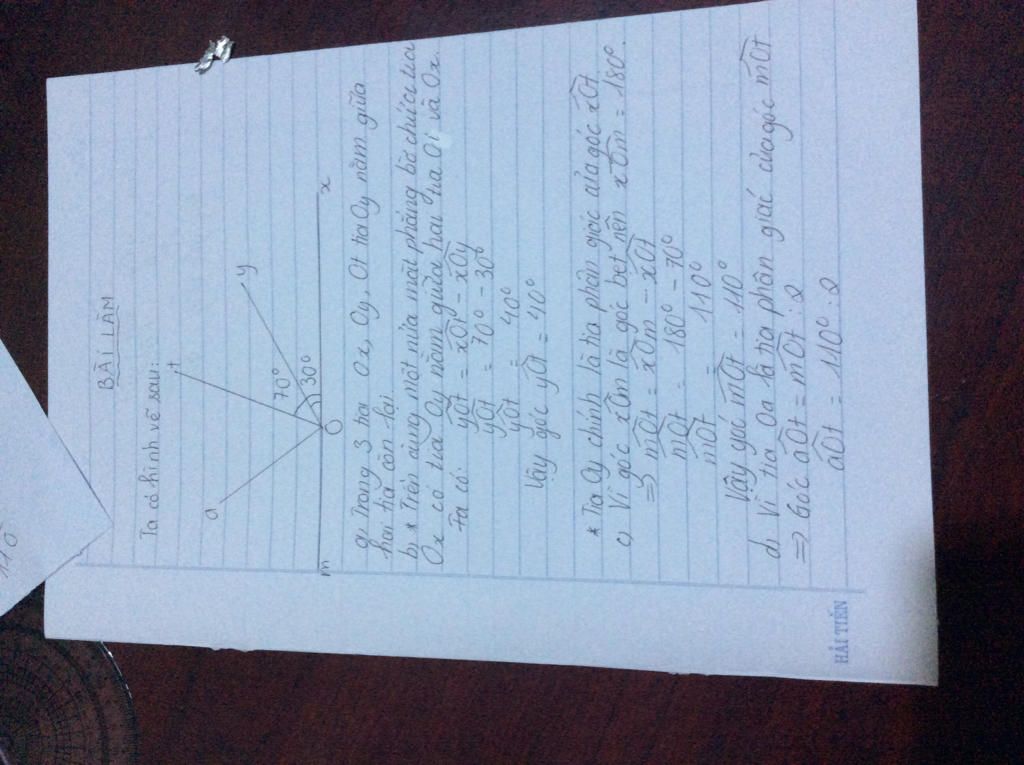 BÀI LÀM
Ta có hình vẽ sau:
t
y
a
70°
30°
m
O
x
a) Trong 3 tia Ox, Oy, Ot tia Oy nằm giữa
hai tia còn lại
b) * Trên cùng một nửa mặt phẳng bờ chứa tia
Ox có tia Oy nằm giữa hai tia Ot và Ox.
Ta có: yOt = xOt - xOy
yOt = 70° - 30°
yOt = 40°
Vậy góc yOt = 40°
* Tia Oy chính là tia phân giác của góc xOt
c) Vì góc xOm là góc bẹt nên xOm = 180°.
=> mOt = xOm - xOt
mOt = 180° - 70°
mOt = 110°
Vậy góc mOt = 110°
d) Vì tia Oa là tia phân giác của góc mOt
=> Góc aOt = mOt : 2
aOt = 110° : 2
HẢI TIẾN